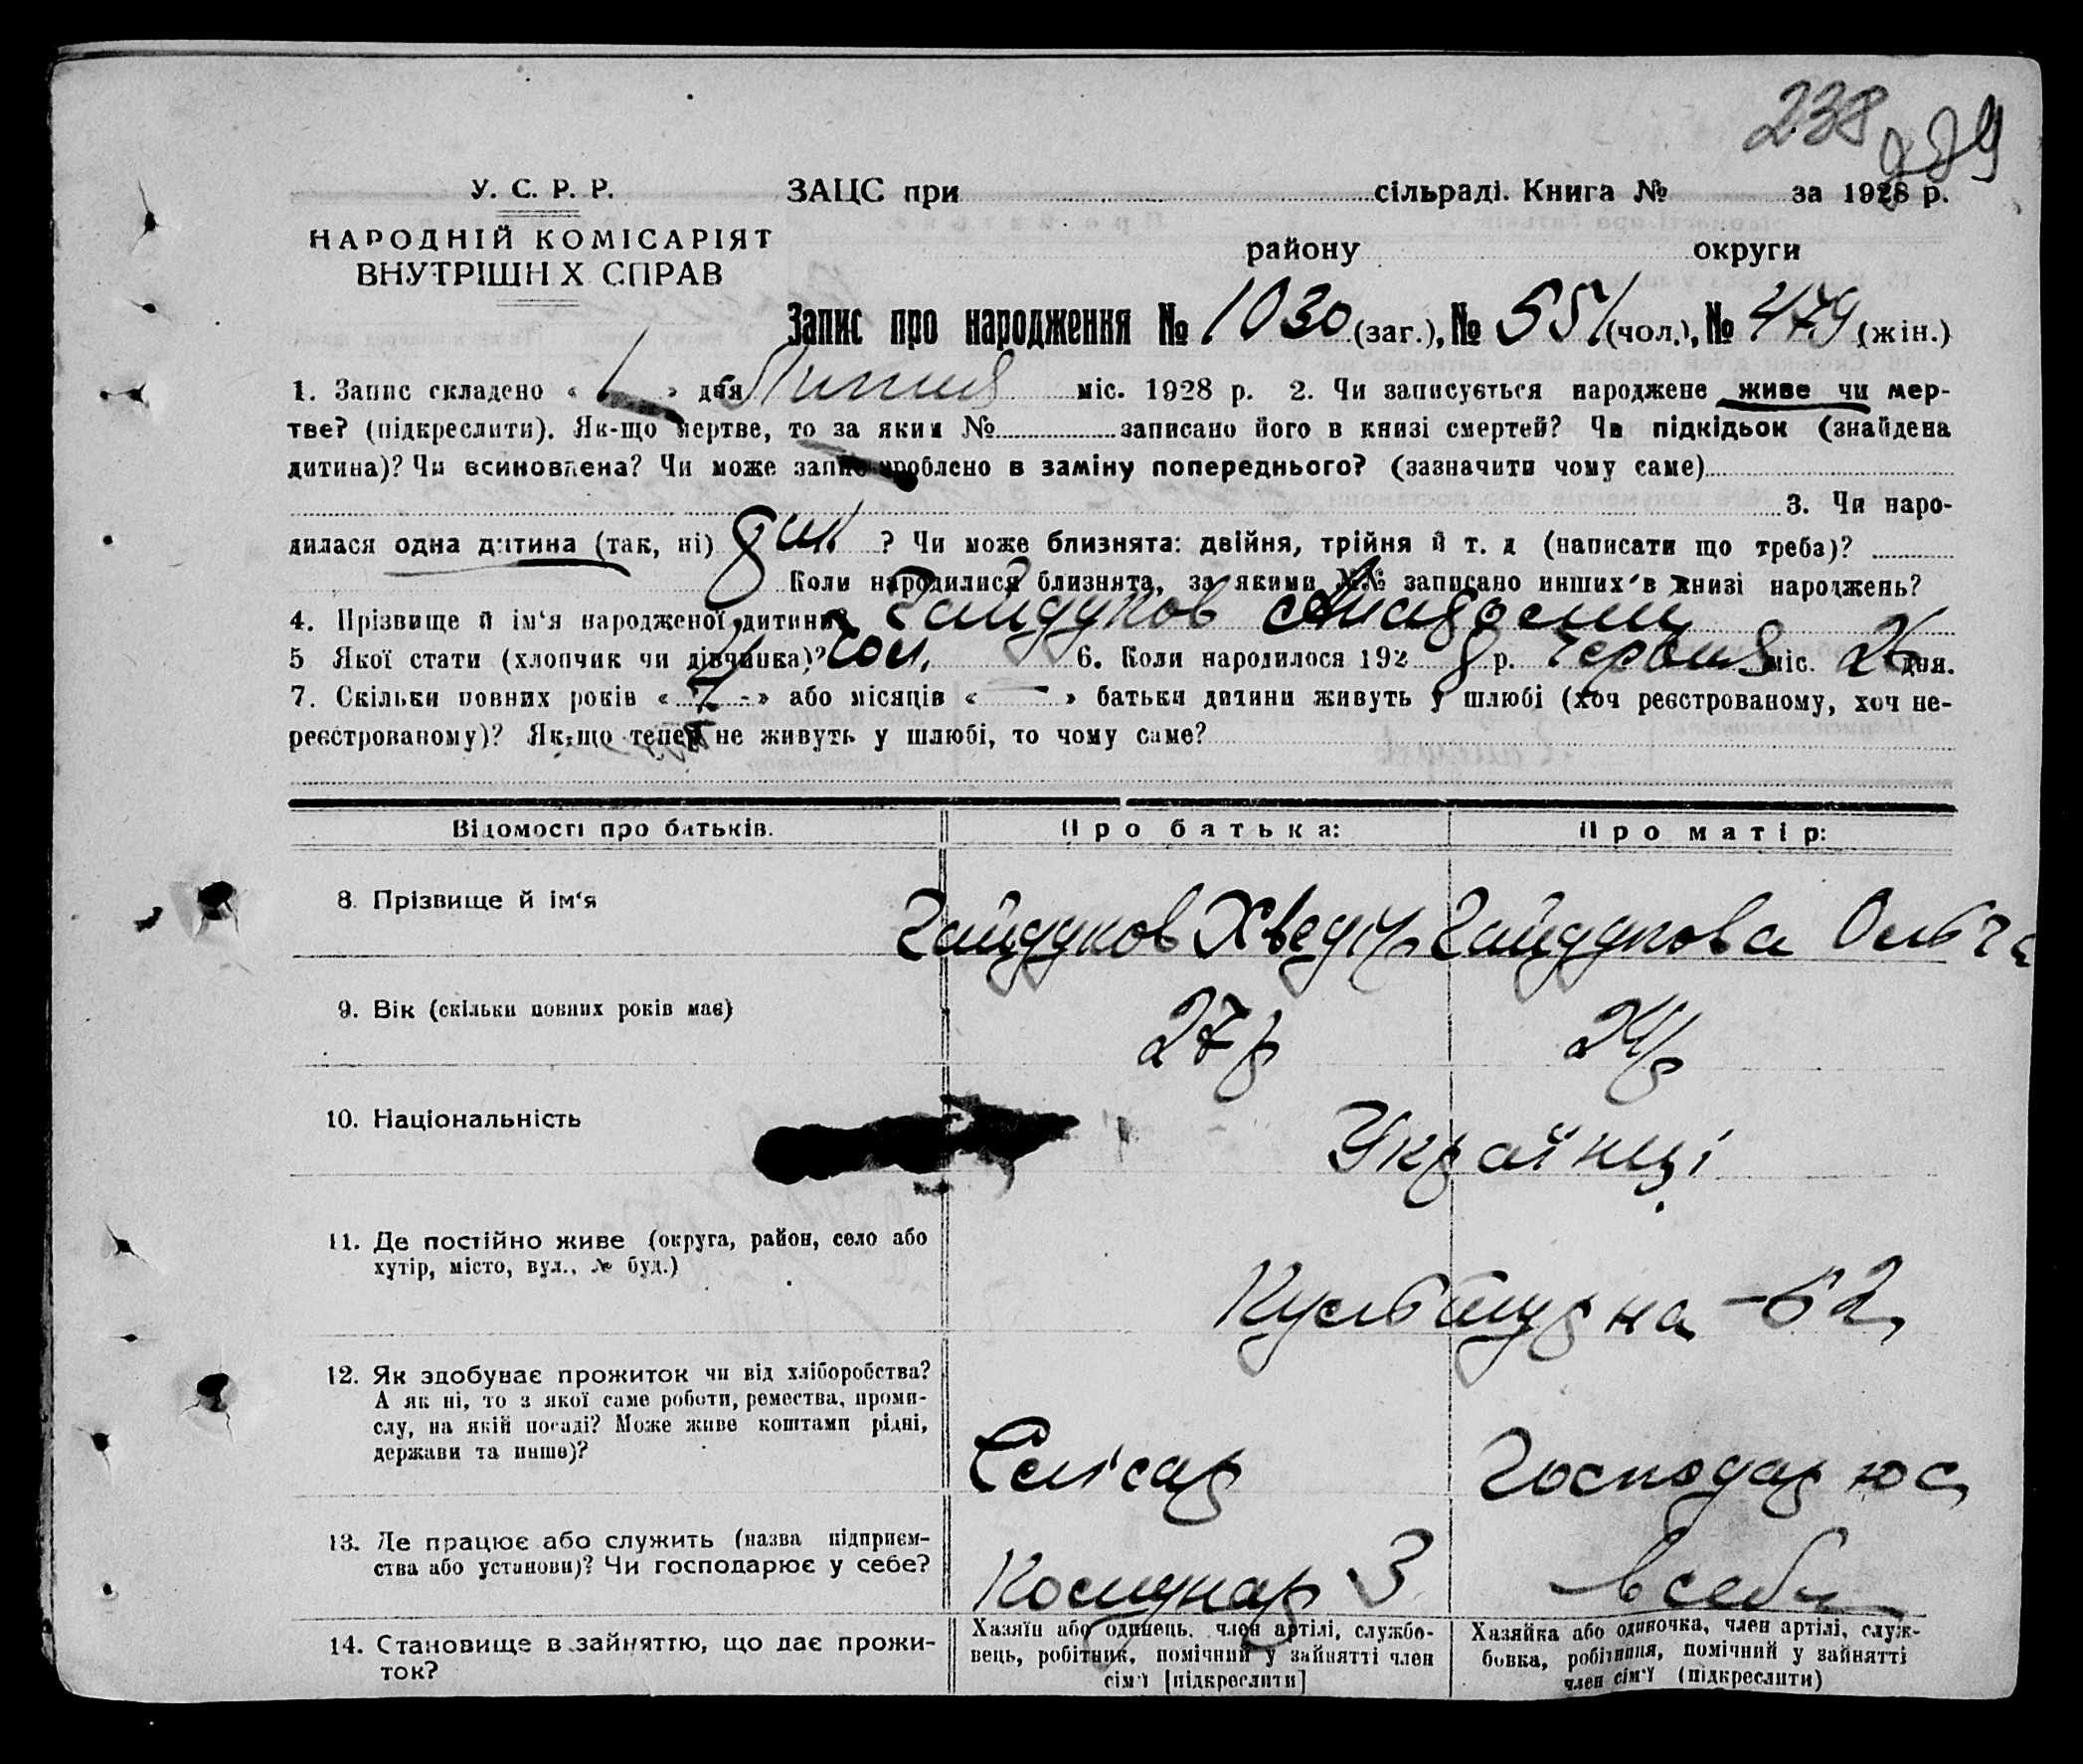 238
239
У. С. Р. Р.
ЗАЦС при сільраді. Книга № за 1928 р.
НАРОДНІЙ КОМІСАРІЯТ
ВНУТРІШН Х СПРАВ
району округи
Запис про народження № 1030 (заг.), № 551 (чол.), № 479 (жін.)
1. Запис складено « 1 » дня Липня міс. 1928 р. 2. Чи записується народжене живе чи мер-
тве? (підкреслити). Як-що мертве, то за яким № записано його в книзі смертей? Чи підкідьок (знайдена
дитина)? Чи всиновлена? Чи може запис зроблено в заміну попереднього? (зазначити чому саме)
3. Чи наро-
дилася одна дитина (так, ні) ? Чи може близнята: двійня, трійня й т. д (написати що треба)?
Коли народилися близнята, за якими №№ записано инших в книзі народжень?
4. Прізвище й ім‘я народженої дитини? Гайдуков
5 Якої стати (хлопчик чи дівчинка)? Чол. 6. Коли народилося 1928 р. Червня міс. 26 дня.
7. Скільки повних років « 7 - » або місяців « - » батьки дитини живуть у шлюбі (хоч реєстрованому, хоч не-
реєстрованому)? Як-що тепер не живуть у шлюбі, то чому саме?
Відомості про батьків. Про батька: Про матір:
8. Прізвище й ім‘я Гайдуков Хведір Гайдукова Ольга
9. Вік (скільки повних років має) 27 р 24 р
10. Національність Українці
11. Де постійно живе (округа, район, село або
хутір, місто, вул., № буд.)
Культурна - 62
12. Як здобуває прожиток чи від хліборобства?
А як ні, то з якої саме роботи, ремества, проми-
слу, на якій посаді? Може живе коштами рідні,
держави та инше)?
Слісар Господарює
13. Де працює або служить (назва підприєм-
ства або установи)? Чи господарює у себе?
Комунар З в себе
14. Становище в зайняттю, що дає прожи-
ток?
Хазяїн або одинець, член артілі, службо-
вець, робітник, помічний у зайнятті член
сім‘ї [підкреслити]
Хазяйка або одиночка, член артілі, служ-
бовка, робітниця, помічний у зайнятті
член сім‘ї (підкреслити)